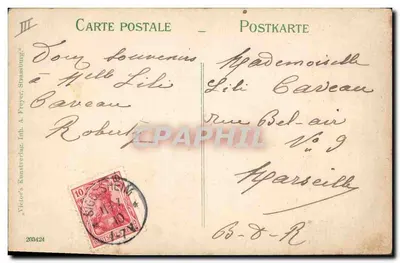 III
CARTE POSTALE
POSTKARTE
Doux souvenirs
à Melle Lili
Caveau
Robert
Mademoiselle
Lili Caveau
rue Bel-air
No 9
Marseille
B-D-R
10
CPARAPHIL
"Victor's Kunstverlag, Inh. A. Freyer, Strassburg."
205424